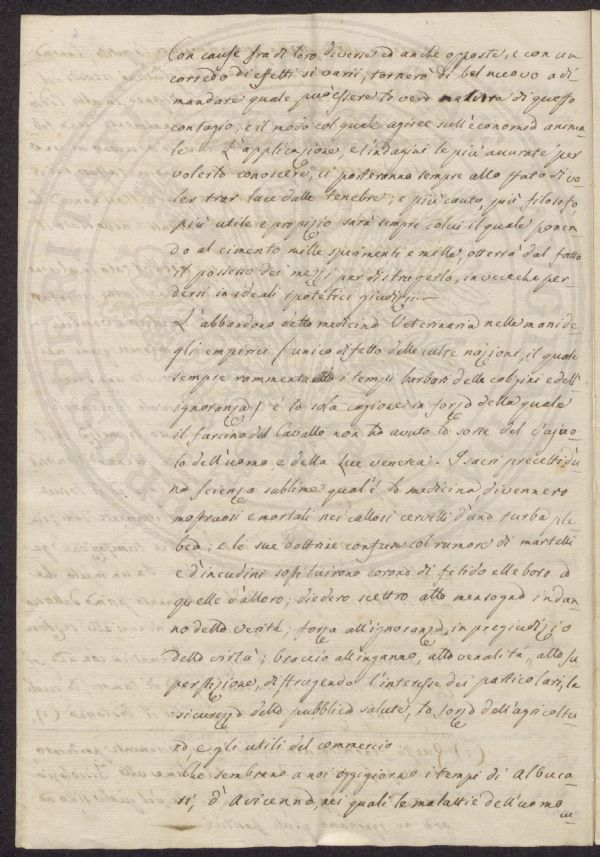 Con cause fra di loro diverse ed anche opposte, e con un
corredo di effetti sì varii, tornerò di bel nuovo a di=
mandare quale può essere la vera natura di questo
contagio, e il modo col quale agisce sull'economia anima
le. L'applicazione, e l'indagini le più accurate per
volerlo conoscere, ci porteranno sempre allo stato di vo=
ler trar luce dalle tenebre; e più cauto, più filosofo,
più utile e propizio sarà sempre colui il quale ponen=
do al cimento mille sperimenti e mille, otterrà dal fatto
il possesso dei mezzi per distrugerlo, invece che per=
dersi in ideali ipotetici giudizii.
L'abbandono della medicina Veterinaria nelle mani de
gli empirici (unico difetto delle culte nazioni, il quale
sempre rammenta i tempi barbari delle
ignoranza) è la sola cagione in forza della quale
il farcino del Cavallo non ha avuto la sorte del vajuo=
lo dell'uomo, e della Lue venerea. I sacri precetti d'u=
na scienza sublime qual'è la medicina, divennero
mostruosi e mortali nei callosi cervelli d'una turba ple
bea; e le sue dottrine confuse col rumore di martelli
e d'incudini sostituirono corone di fetido elleboro a
quelle d'alloro; diedero scettro alla menzogna in dan=
no della verità; forza all'ignoranza, in pregiudizio
della virtù; braccio all'inganno, alla venalità, alla su
perstizione, distrugendo l'interesse dei particolari, la
sicurezza della pubblica salute, la forza dell'agricoltu
ra, e gli utili del commercio.
Che sembrano a noi oggigiorno i tempi di Albuca=
si, d'Avicenna, nei quali le malattie dell'uomo